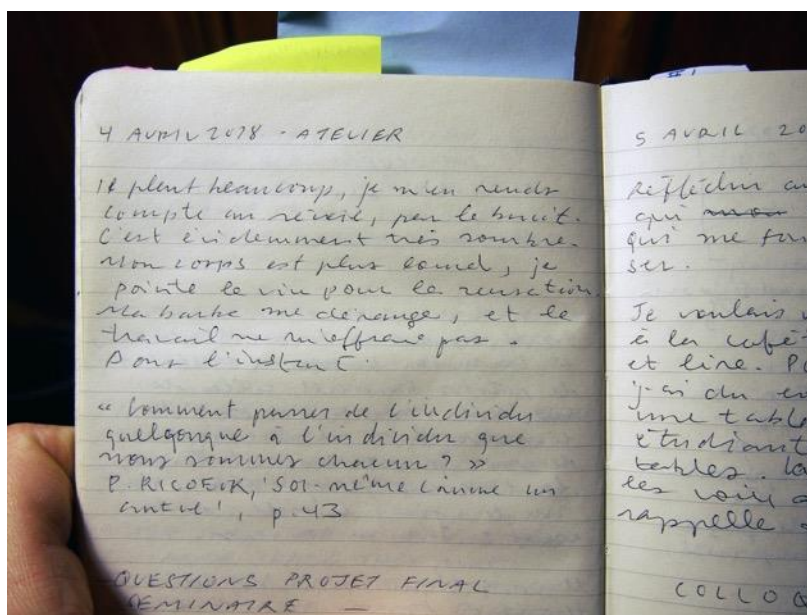 4 AVRIL 2018 - ATELIER
Il pleut beaucoup, je m'en rends
compte au réveil, par le bruit.
C'est évidemment très sombre.
Mon corps est plus lourd, je
pointe le vin pour la sensation.
Ma barbe me dérange, et le
travail ne m'effraie pas.
Pour l'instant.
« Comment passer de l'individu
quelqonque à l'individu que
nous sommes chacun ? »
P. RICOEUR, 'SOI-même comme un
autre', p.43
QUESTIONS PROJET FINAL
SEMINAIRE —
5 AVRIL 20
Réfléchir
qui
qui me
ser.
Je voulais
à la café
et lire.
j'ai du
une table
étudiant
tables. La
les voix
rappelle
COLLOQ